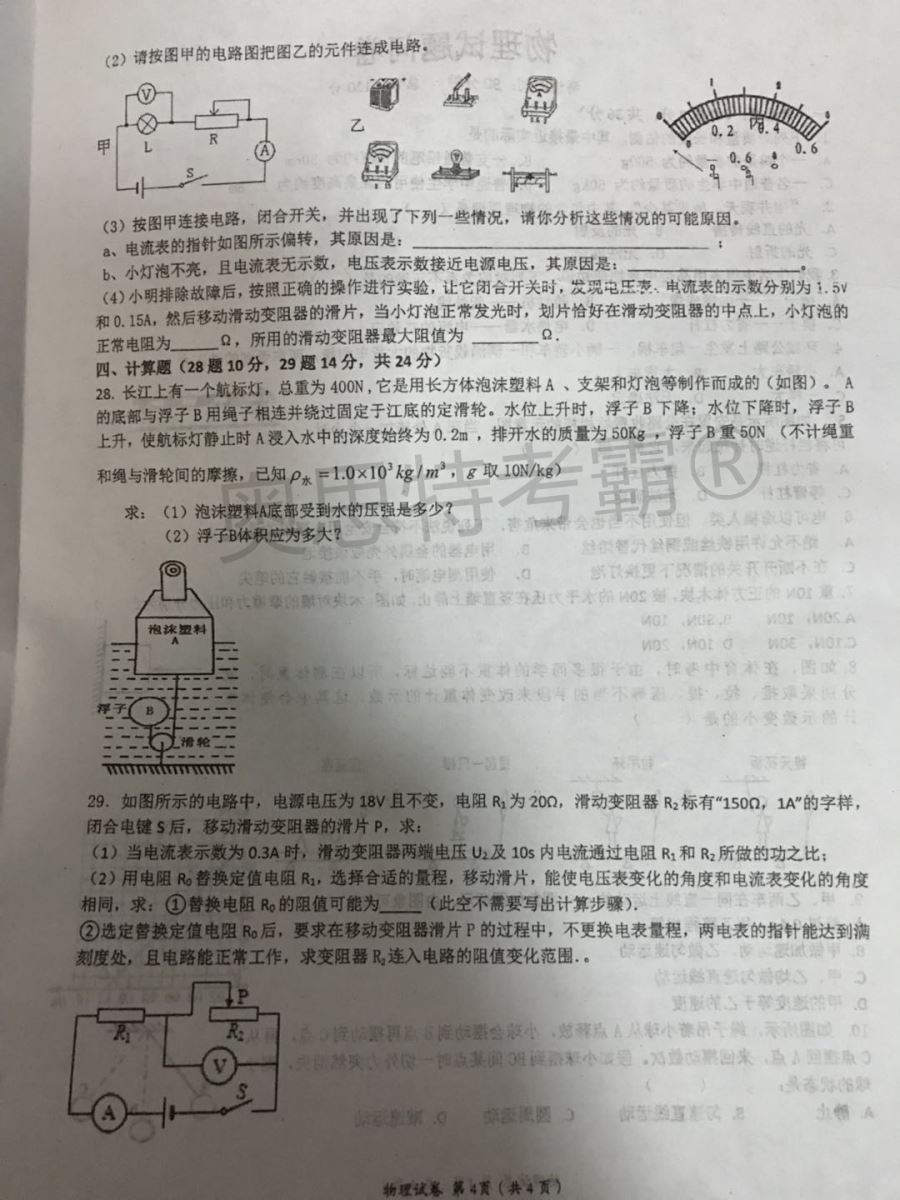 (2)请按图甲的电路图把图乙的元件连成电路。
V
L
R
A
S
甲
乙
0.2
0.4
0.6
(3)按图甲连接电路，闭合开关，并出现了下列一些情况，请你分析这些情况的可能原因。
a、电流表的指针如图所示偏转，其原因是：；
b、小灯泡不亮，且电流表无示数，电压表示数接近电源电压，其原因是：。
(4)小明排除故障后，按照正确的操作进行实验，让它闭合开关时，发现电压表、电流表的示数分别为1.5v
和0.15A，然后移动滑动变阻器的滑片，当小灯泡正常发光时，划片恰好在滑动变阻器的中点上，小灯泡的
正常电阻为Ω，所用的滑动变阻器最大阻值为Ω.
四、计算题（28题10分，29题14分，共24分）
28. 长江上有一个航标灯，总重为400N，它是用长方体泡沫塑料A、支架和灯泡等制作而成的（如图）。A
的底部与浮子B用绳子相连并绕过固定于江底的定滑轮。水位上升时，浮子B下降；水位下降时，浮子B
上升，使航标灯静止时A浸入水中的深度始终为0.2m，排开水的质量为50Kg，浮子B重50N（不计绳重
和绳与滑轮间的摩擦，已知ρ水=1.0×10³kg/m³，g取10N/kg）
求：（1）泡沫塑料A底部受到水的压强是多少？
（2）浮子B体积应为多大？
泡沫塑料
A
浮子
B
滑轮
29. 如图所示的电路中，电源电压为18V且不变，电阻R₁为20Ω，滑动变阻器R₂标有“150Ω，1A”的字样，
闭合电键S后，移动滑动变阻器的滑片P，求：
（1）当电流表示数为0.3A时，滑动变阻器两端电压U₂及10s内电流通过电阻R₁和R₂所做的功之比；
（2）用电阻R₀替换定值电阻R₁，选择合适的量程，移动滑片，能使电压表变化的角度和电流表变化的角度
相同，求：①替换电阻R₀的阻值可能为（此空不需要写出计算步骤).
②选定替换定值电阻R₀后，要求在移动变阻器滑片P的过程中，不更换电表量程，两电表的指针能达到满
刻度处，且电路能正常工作，求变阻器R₂连入电路的阻值变化范围.。
P
R₁
R₂
V
S
A
物理试卷 第4页(共4页)
奥思特考霸®